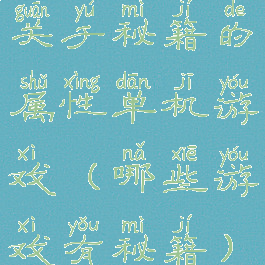 guān yú mì jí de
关于秘籍的
shǔ xìng dān jī yóu
属性单机游
xì nǎ xiē yóu
戏（哪些游
xì yǒu mì jí
戏有秘籍）